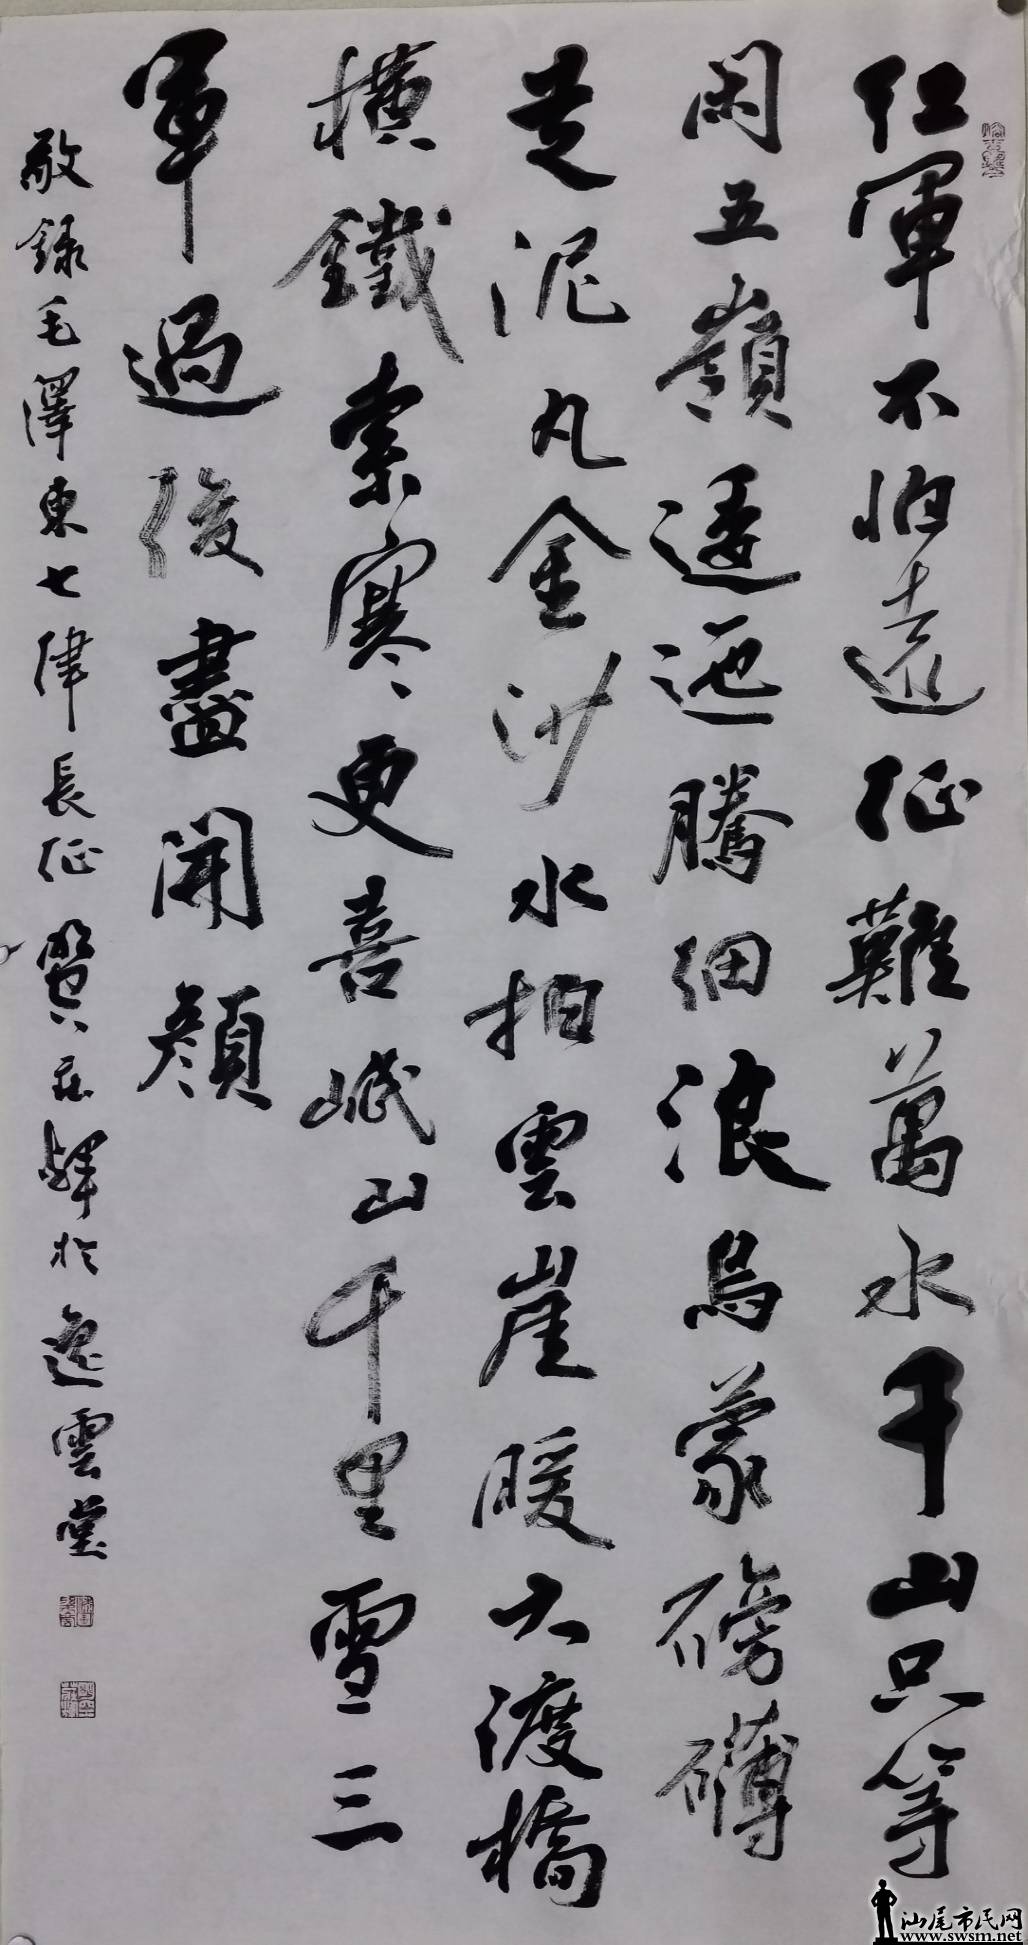 紅軍不怕遠征難萬水千山只等
閑五嶺逶迤騰細浪烏蒙磅礴
走泥丸金沙水拍雲崖暖大渡橋
橫鐵索寒更喜岷山千里雪三
軍過後盡開顏
敬錄毛澤東七律長征莊輝於逸雲堂
汕尾市民网
www.swsm.net